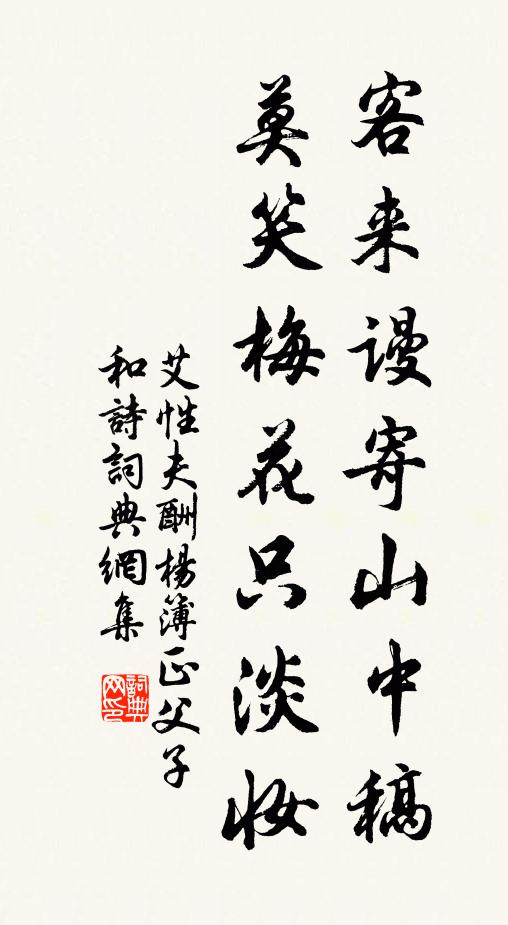 客来谩寄山中稿
莫笑梅花只淡妆
艾性夫酬楊簿正父子
和詩詞典網集
詞典网印